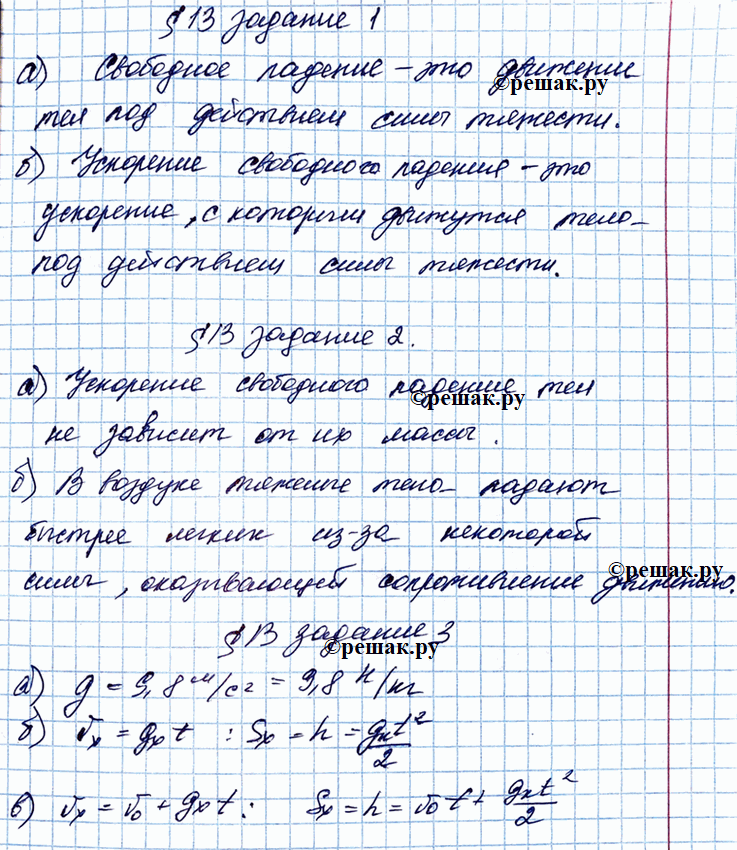 §13 задание 1
а) Свободное падение – это движение
©решак.ру
тел под действием силы тяжести.
б) Ускорение свободного падения – это
ускорение, с которым движутся тела
под действием силы тяжести.
§13 задание 2.
а) Ускорение свободного падение тел
©решак.ру
не зависит от их массы.
б) В воздухе тяжелые тела падают
быстрее легких из-за некоторой
©решак.ру
силы, оказывающей сопротивление движению.
§13 задание 3
©решак.ру
а) g = 9,8 м/с² = 9,8 Н/кг
б) υₓ = gₓt ; Sₓ = h = gₓt²/2
в) υₓ = υ₀ + gₓt ; Sₓ = h = υ₀t + gₓt²/2